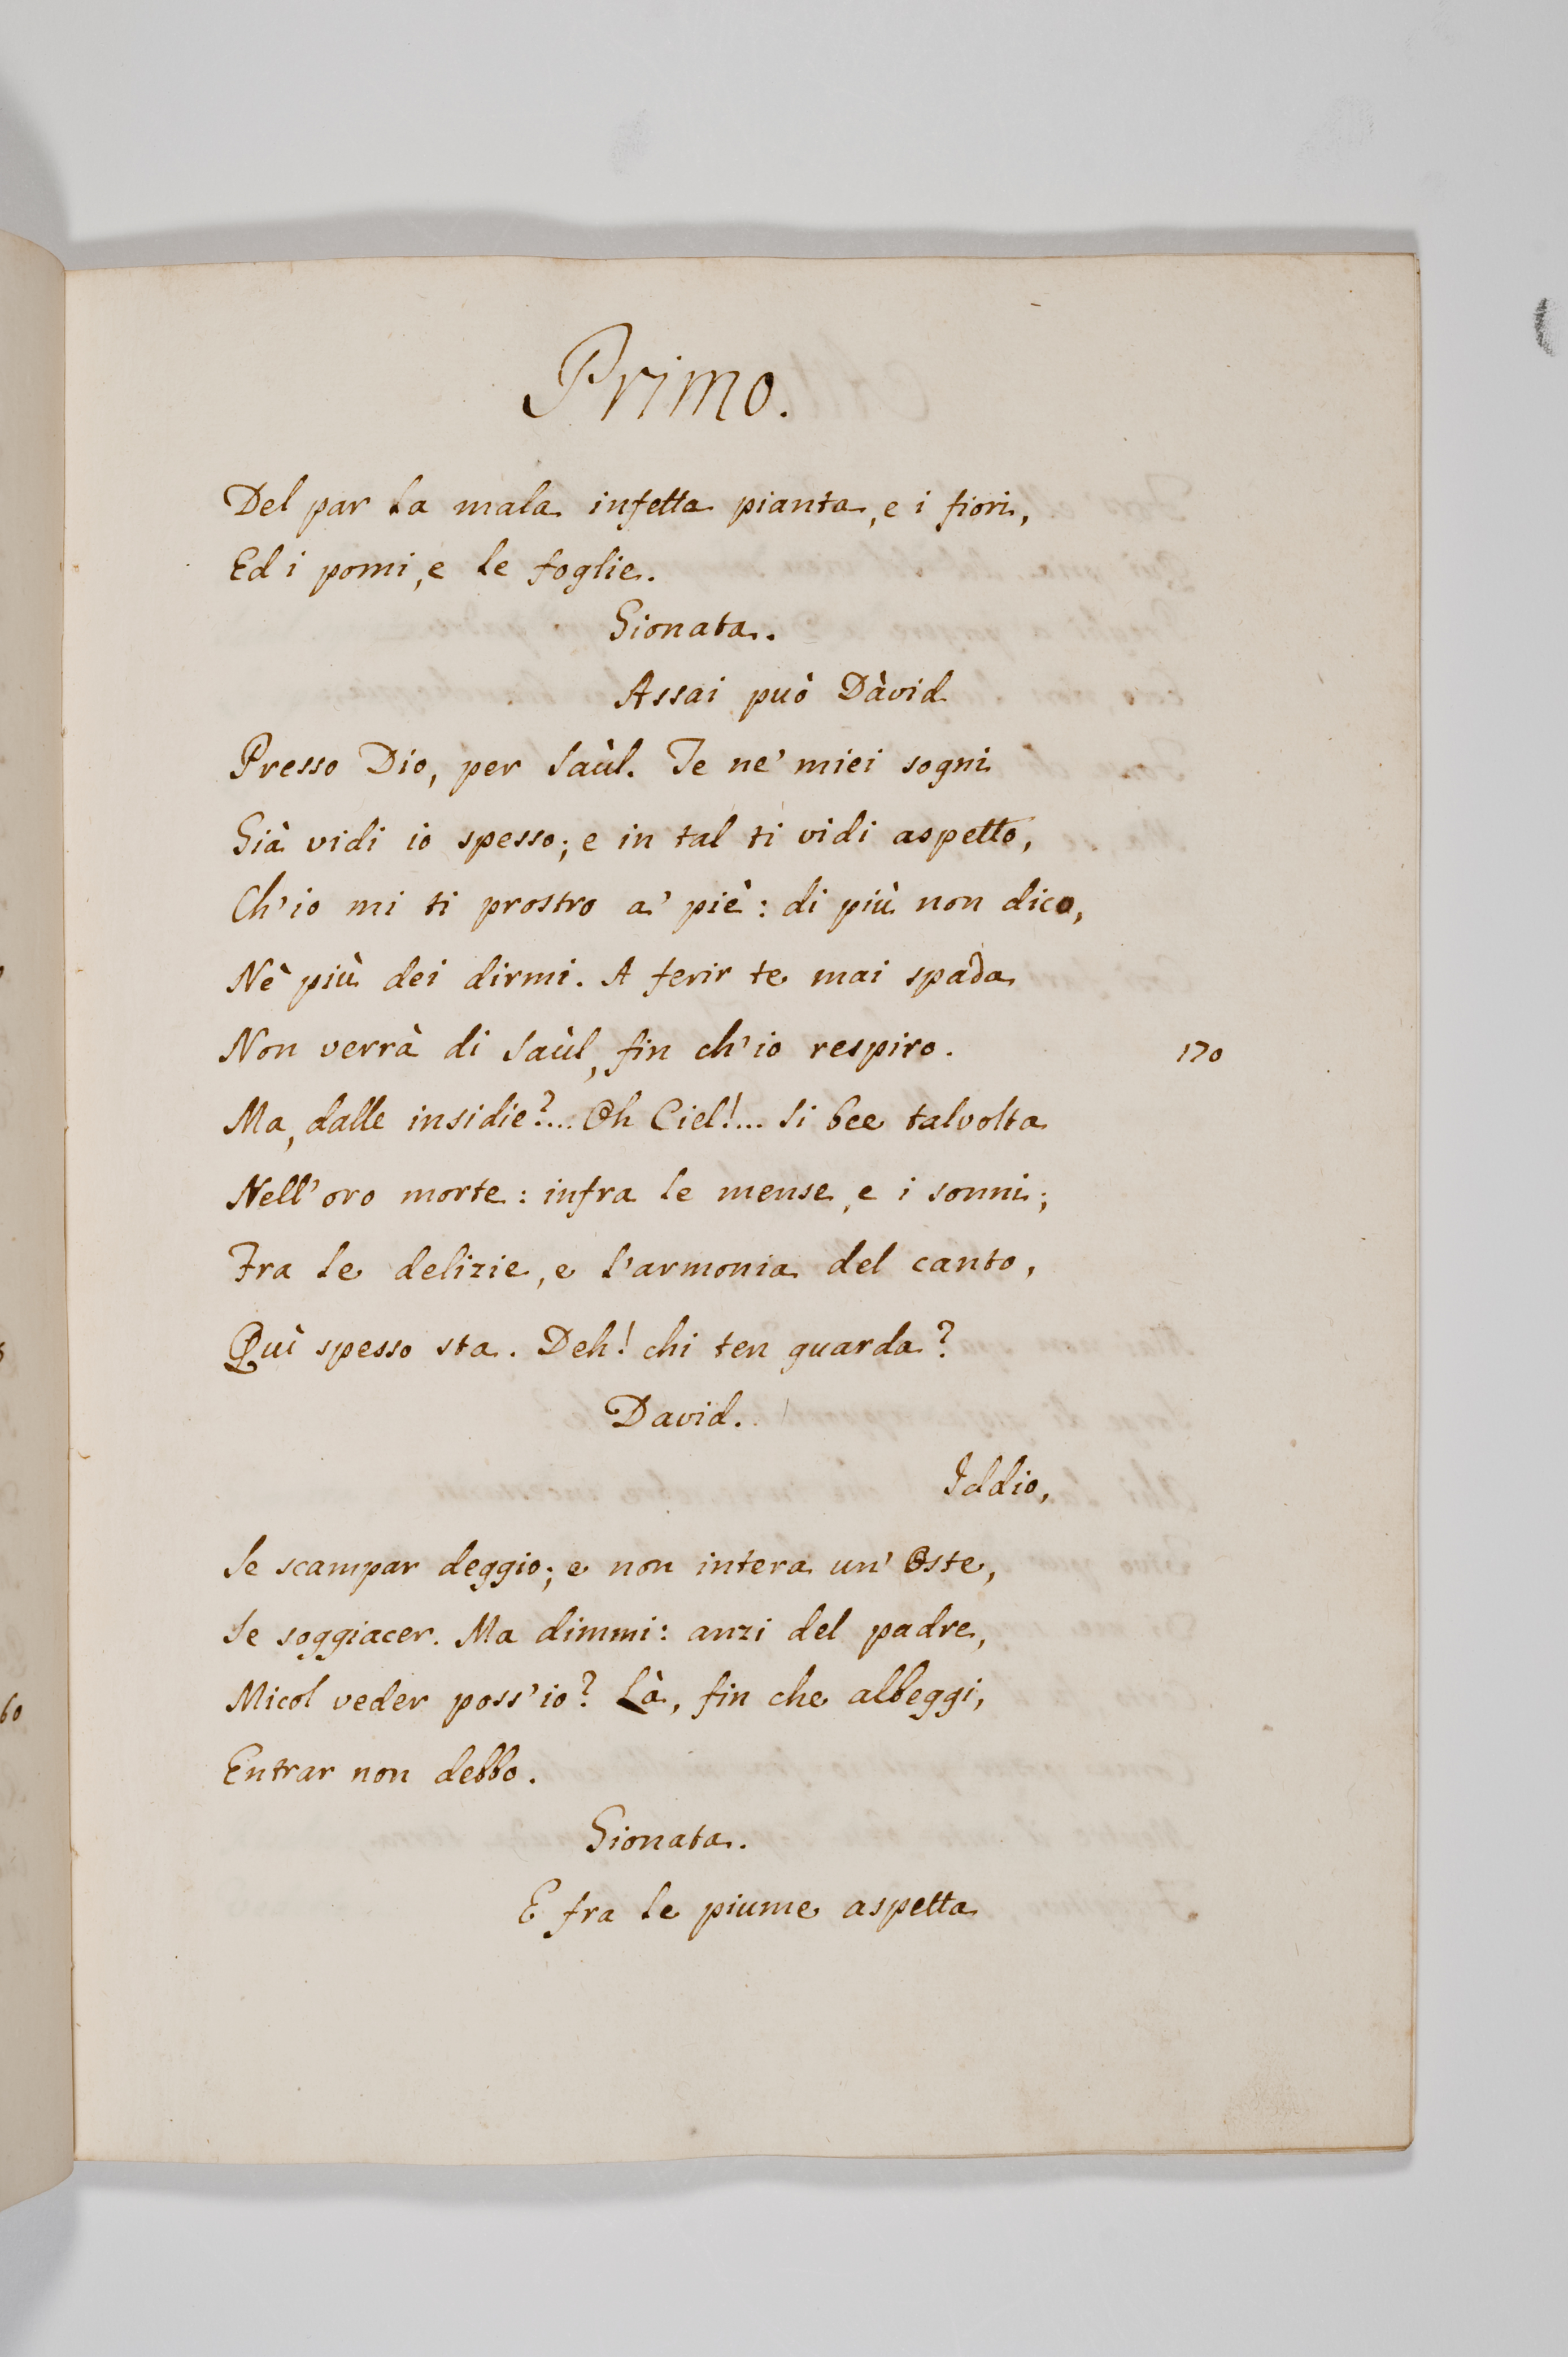 Primo.
Del par la mala infetta pianta, e i fiori,
Ed i pomi, e le foglie.
Gionata.
Assai può Dàvid
Presso Dio, per Saùl. Te ne' miei sogni
Già vidi io spesso; e in tal ti vidi aspetto,
Ch'io mi ti prostro a' piè: di più non dico,
Nè più dei dirmi. A ferir te mai spada
Non verrà di Saùl, fin ch'io respiro. 170
Ma, dalle insidie?... Oh Ciel!... Si bee talvolta
Nell'oro morte: infra le mense, e i sonni;
Fra le delizie, e l'armonia del canto,
Quì spesso sta. Deh! chi ten guarda?
David.
Iddio,
Se scampar deggio; e non intera un'Oste,
Se soggiacer. Ma dimmi: anzi del padre,
Micol veder poss'io? Là, fin che albeggi,
60
Entrar non debbo.
Gionata.
E fra le piume aspetta